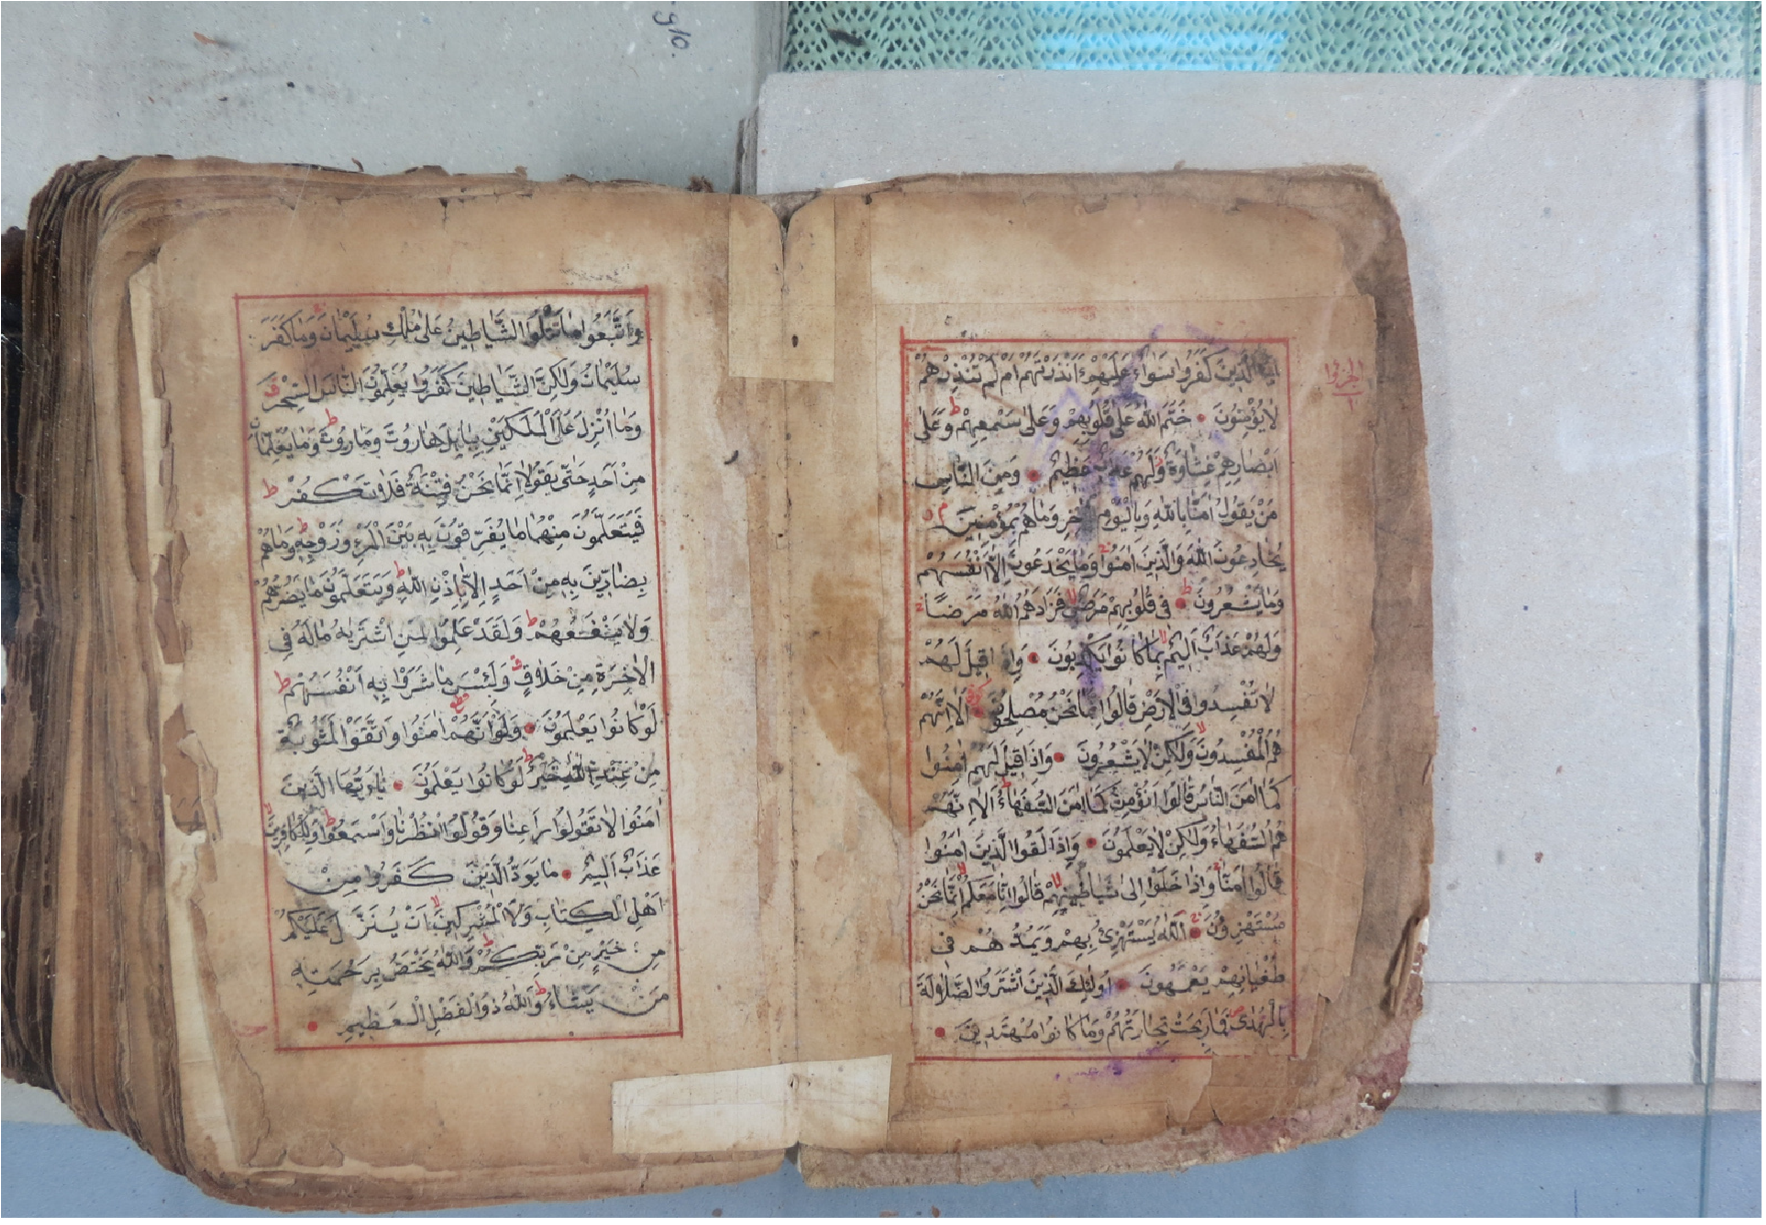 اِنَّ الَّذِينَ كَفَرُوا سَوَاءٌ عَلَيْهِمْ ءَاَنْذَرْتَهُمْ اَمْ لَمْ تُنْذِرْهُمْ
لَا يُؤْمِنُونَ خَتَمَ اللّٰهُ عَلٰى قُلُوبِهِمْ وَعَلٰى سَمْعِهِمْ ط وَعَلٰى
اَبْصَارِهِمْ غِشَاوَةٌ وَلَهُمْ عَذَابٌ عَظِيمٌ وَمِنَ النَّاسِ
مَنْ يَقُولُ اٰمَنَّا بِاللّٰهِ وَبِالْيَوْمِ الْاٰخِرِ وَمَاهُمْ بِمُؤْمِنِينَ م
يُخَادِعُونَ اللّٰهَ وَالَّذِينَ اٰمَنُوا وَمَا يَخْدَعُونَ اِلَّا اَنْفُسَهُمْ
وَمَا يَشْعُرُونَ ط فِى قُلُوبِهِمْ مَرَضٌ لا فَزَادَهُمُ اللّٰهُ مَرَضًا
وَلَهُمْ عَذَابٌ اَلِيمٌ لا بِمَا كَانُوا يَكْذِبُونَ وَاِذَا قِيلَ لَهُمْ
لَا تُفْسِدُوا فِى الْاَرْضِ قَالُوا اِنَّمَا نَحْنُ مُصْلِحُونَ اَلَا اِنَّهُمْ
هُمُ الْمُفْسِدُونَ وَلٰكِنْ لَا يَشْعُرُونَ وَاِذَا قِيلَ لَهُمْ اٰمِنُوا
كَمَا اٰمَنَ النَّاسُ قَالُوا اَنُؤْمِنُ كَمَا اٰمَنَ السُّفَهَاءُ ط اَلَا اِنَّهُمْ
هُمُ السُّفَهَاءُ وَلٰكِنْ لَا يَعْلَمُونَ وَاِذَا لَقُوا الَّذِينَ اٰمَنُوا
قَالُوا اٰمَنَّا وَاِذَا خَلَوْا اِلٰى شَيَاطِينِهِمْ لا قَالُوا اِنَّا مَعَكُمْ لا اِنَّمَا نَحْنُ
مُسْتَهْزِؤُنَ اَللّٰهُ يَسْتَهْزِئُ بِهِمْ وَيَمُدُّ هُمْ فِى
طُغْيَانِهِمْ يَعْمَهُونَ اُولٰئِكَ الَّذِينَ اشْتَرَوُا الضَّلَالَةَ
بِالْهُدٰى فَمَا رَبِحَتْ تِجَارَتُهُمْ وَمَا كَانُوا مُهْتَدِينَ
وَاتَّبَعُوا مَا تَتْلُوا الشَّيَاطِينُ عَلٰى مُلْكِ سُلَيْمَانَ وَمَا كَفَرَ
سُلَيْمَانُ وَلٰكِنَّ الشَّيَاطِينَ كَفَرُوا يُعَلِّمُونَ النَّاسَ السِّحْرَ
وَمَا اُنْزِلَ عَلَى الْمَلَكَيْنِ بِبَابِلَ هَارُوتَ وَمَارُوتَ ط وَمَا يُعَلِّمَانِ
مِنْ اَحَدٍ حَتّٰى يَقُولَا اِنَّمَا نَحْنُ فِتْنَةٌ فَلَا تَكْفُرْ ط
فَيَتَعَلَّمُونَ مِنْهُمَا مَا يُفَرِّقُونَ بِهِ بَيْنَ الْمَرْءِ وَزَوْجِهِ ط وَمَا هُمْ
بِضَارِّينَ بِهِ مِنْ اَحَدٍ اِلَّا بِاِذْنِ اللّٰهِ ط وَيَتَعَلَّمُونَ مَا يَضُرُّهُمْ
وَلَا يَنْفَعُهُمْ ط وَلَقَدْ عَلِمُوا لَمَنِ اشْتَرٰيهُ مَا لَهُ فِى
الْاٰخِرَةِ مِنْ خَلَاقٍ وَلَبِئْسَ مَا شَرَوْا بِهِ اَنْفُسَهُمْ ط
لَوْ كَانُوا يَعْلَمُونَ وَلَوْ اَنَّهُمْ اٰمَنُوا وَاتَّقَوْا لَمَثُوبَةٌ
مِنْ عِنْدِ اللّٰهِ خَيْرٌ ط لَوْ كَانُوا يَعْلَمُونَ يَا اَيُّهَا الَّذِينَ
اٰمَنُوا لَا تَقُولُوا رَاعِنَا وَقُولُوا انْظُرْنَا وَاسْمَعُوا ط وَلِلْكَافِرِينَ
عَذَابٌ اَلِيمٌ مَا يَوَدُّ الَّذِينَ كَفَرُوا مِنْ
اَهْلِ الْكِتَابِ وَلَا الْمُشْرِكِينَ لا اَنْ يُنَزَّلَ عَلَيْكُمْ
مِنْ خَيْرٍ مِنْ رَبِّكُمْ ط وَاللّٰهُ يَخْتَصُّ بِرَحْمَتِهِ
مَنْ يَشَاءُ ط وَاللّٰهُ ذُو الْفَضْلِ الْعَظِيمِ